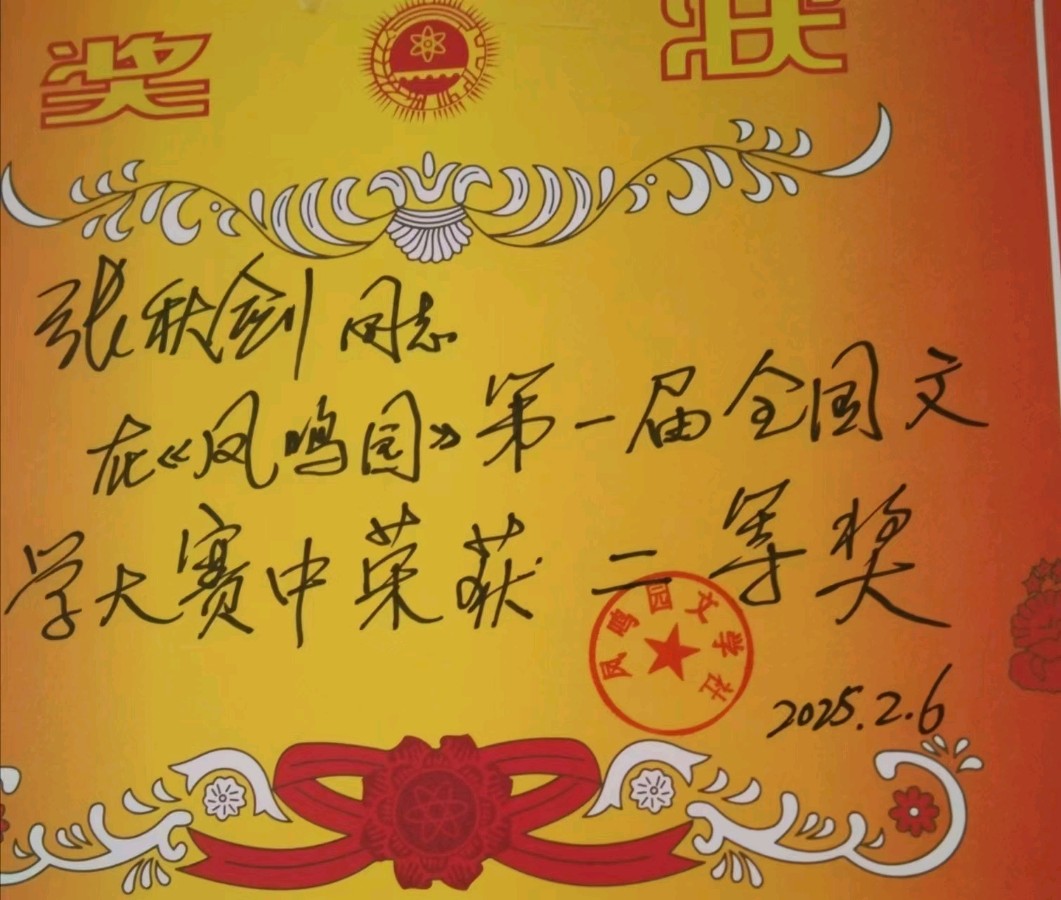 奖 状
张秋剑同志
在《凤鸣园》第一届全国文
学大赛中荣获 二等奖
凤鸣园文学社
2025.2.6